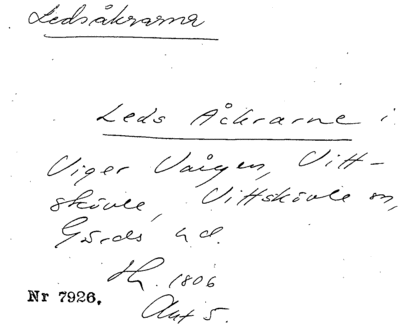 Ledsåkrarna
Leds Åckrarne i
Viger Vången, Vitt-
skövle, Vittskövle sn,
Gärds hd.
1806
Nr 7926.
Akt 5.